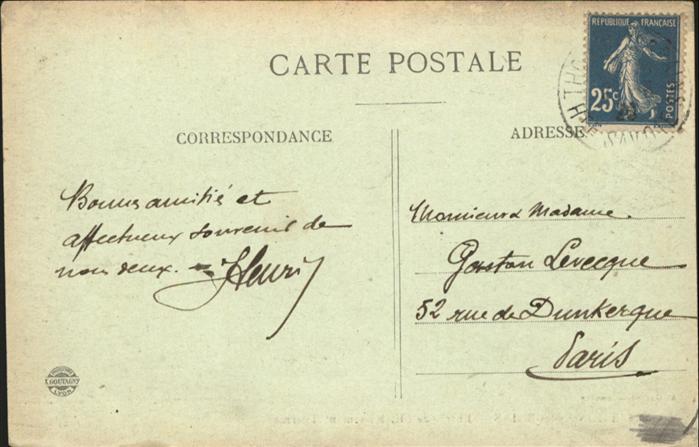 RÉPUBLIQUE FRANÇAISE
25c
POSTES
CARTE POSTALE
CORRESPONDANCE
ADRESSE
Bonnes amitiés et
affectueux souvenir de
nous deux. Henri
Monsieur & Madame.
Gaston Levecque
52 rue de Dunkerque
Paris
GOUTAGNY
LYON